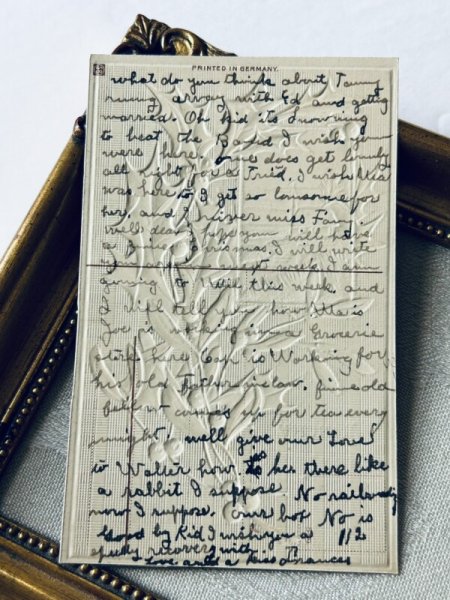 PRINTED IN GERMANY.
what do you think about Tammy
runing away with Ed and getting
married. Oh kid its snowing
to beat the Band I wish you
were here. one does get lonely
all right for a Frid. I wish
was here to I get so lonsome for
her, and I never miss Fany.
well dear hope you will have
a fine Christmas. I will write
week. I am
going to this week, and
I will tell you how is
Joe is working in a Grocerie
store here is Working for
his old Father in law. fine old
comes up for tea every
night. well give our Love
to Walter how is he there like
a rabbit I suppose. No
now I suppose. our box No is
Good by Kid I wish you a 112
recovery with
Love and a kiss Frances